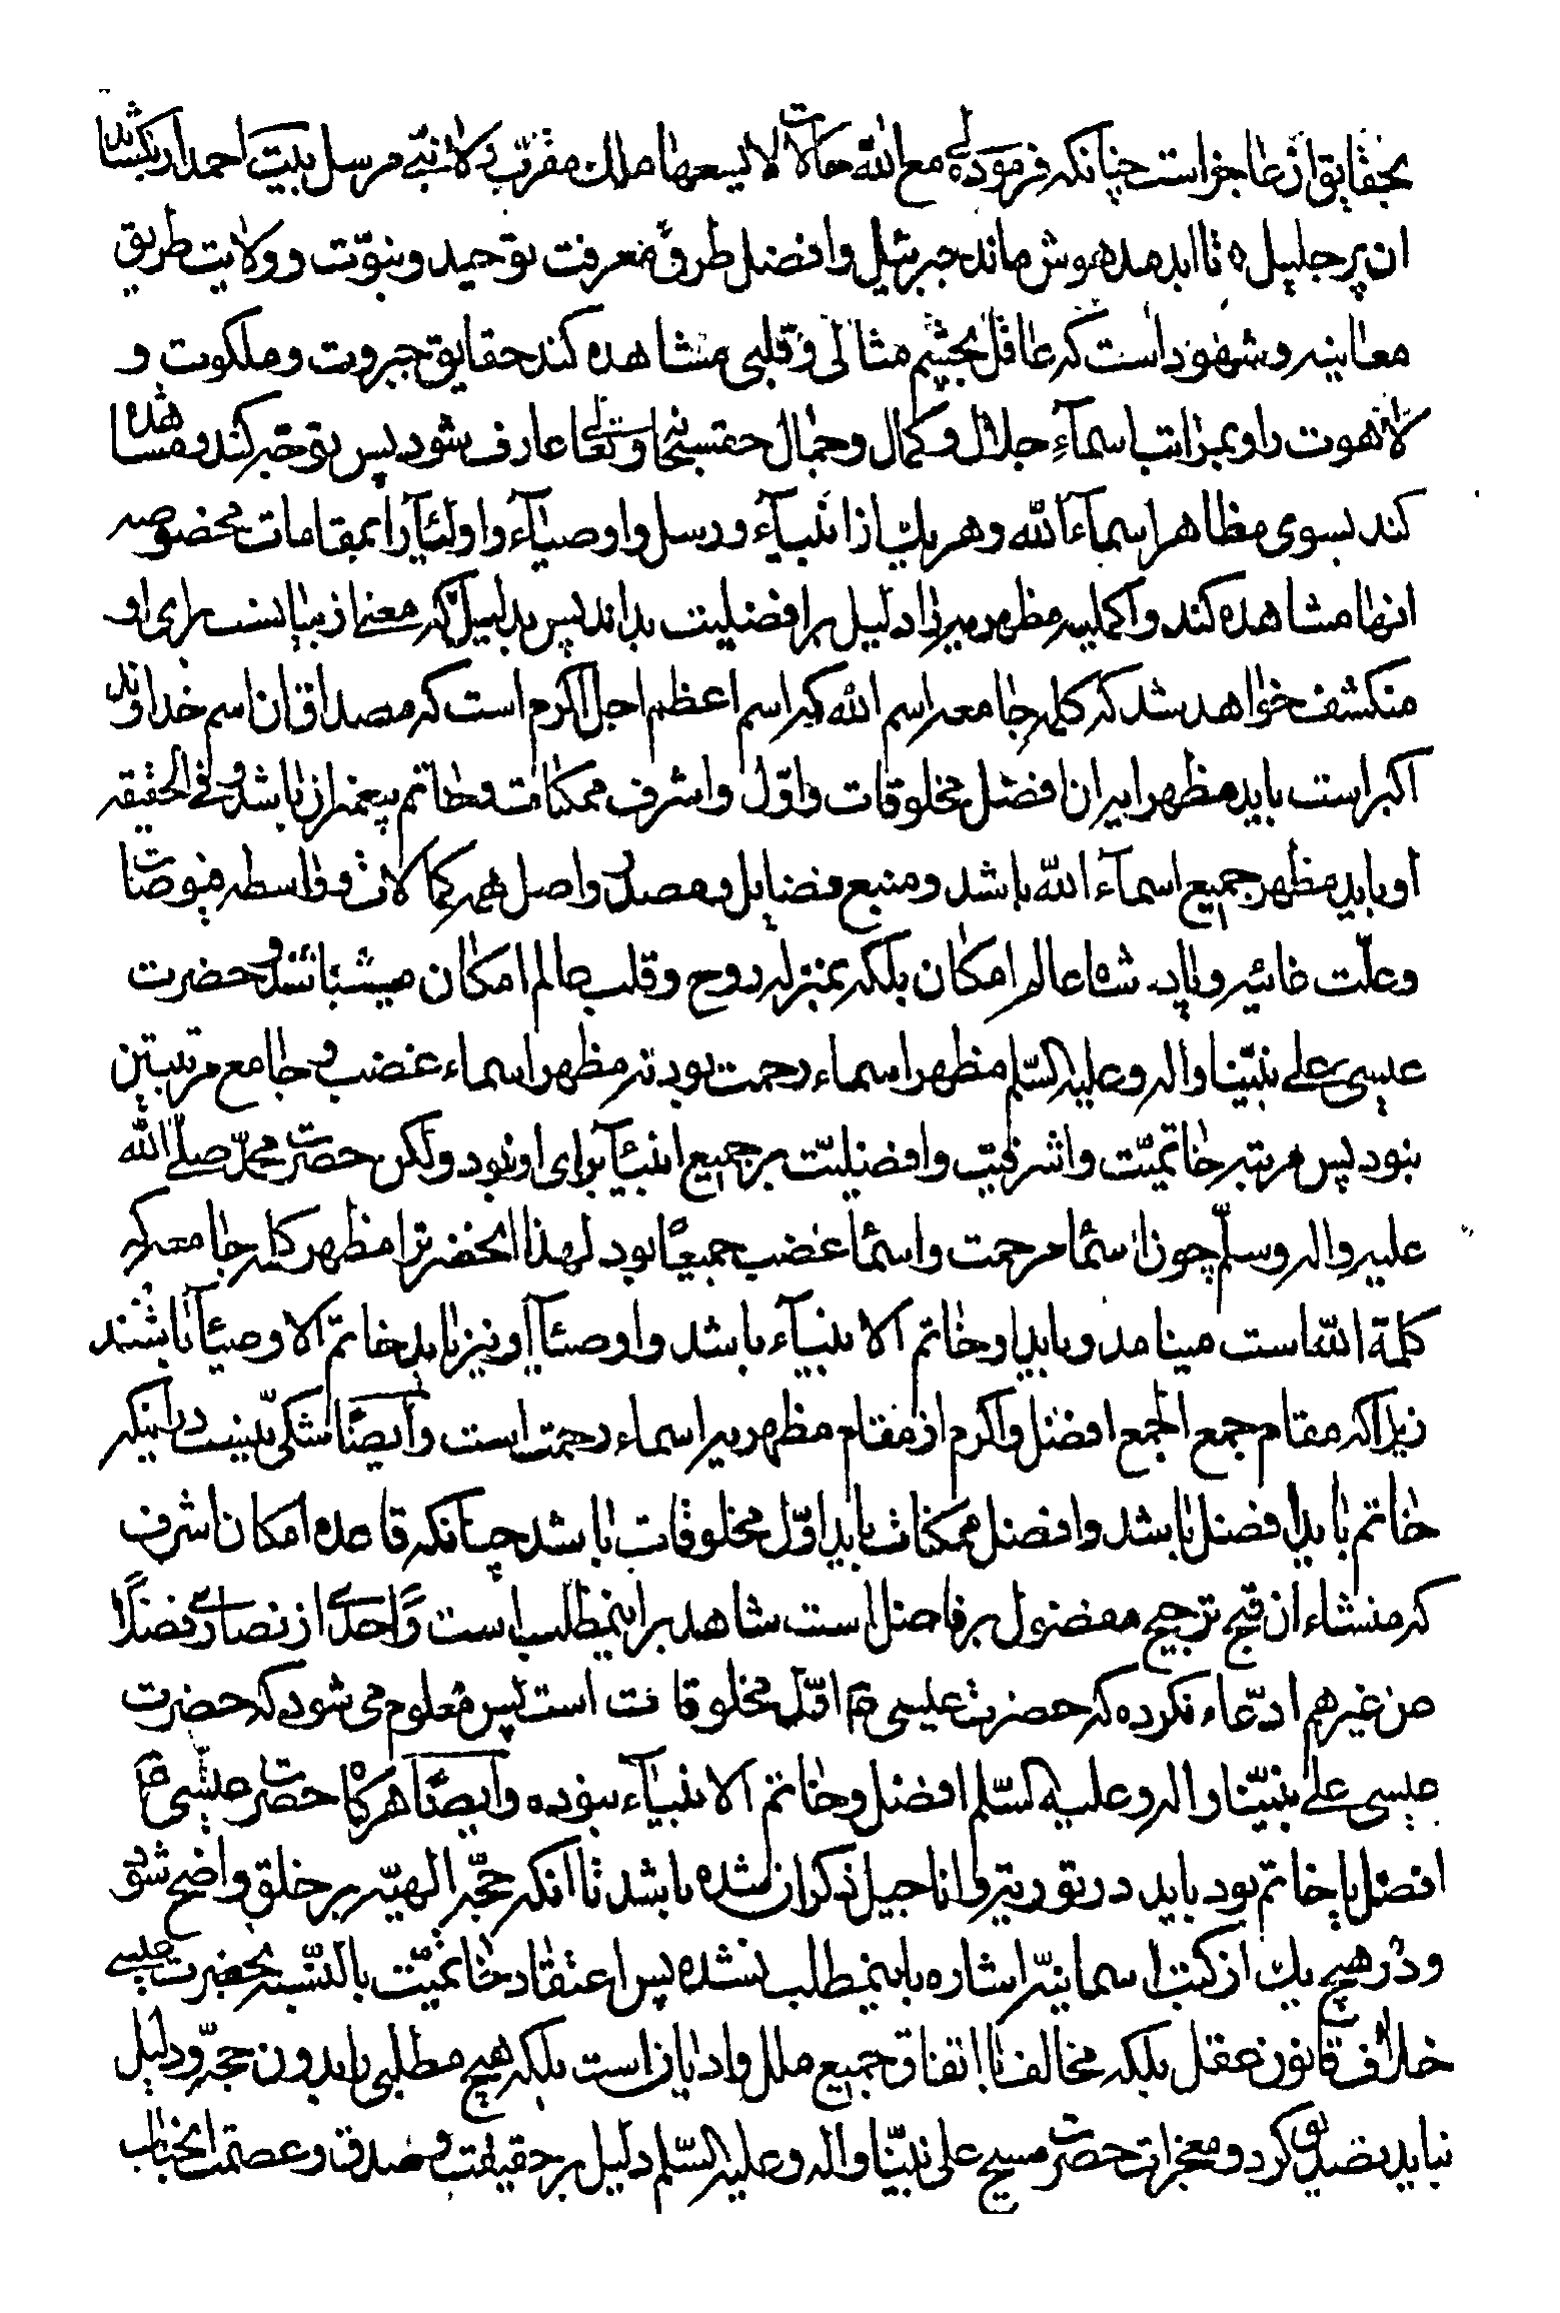 بحقایق از عاجز است چنانکه فرموده لی مع الله حالات لا یسعها ملك مقرب و لا نبی مرسل بیت احمد ار بگشاید
ان پر جلیل ه تا ابد مدهوش ماند جبرئیل و افضل طرق معرفت توحید و نبوّت و ولایت طریق
معاینه و شهود است که عاقل بچشم مثالی و قلبی مشاهده کند حقایق جبروت و ملکوت و
لاهوت را و بمراتب اسماءِ جلال و کمال و جمال حقسبحانه و تعالی عارف شود پس توجّه کند و مشاهده
کند بسوی مظاهر اسماء الله و هر یك از انبیآء و رسل و اوصیآء و اولیآء را بمقامات مخصوصه
انها مشاهده کند و اکملیه مظهریه را دلیل بر افضلیت بداند پس بدلیل که معنی از بیانست برای او
منکشف خواهد شد که کلمه جامعه اسم الله که اسم اعظم اجل اکرم است که مصداق ان اسم خداوند
اکبر است باید مظهر ایران افضل مخلوقات و اوّل و اشرف ممکنات و خاتم پیغمبران باشد و فی الحقیقه
او باید مظهر جمیع اسمآء الله باشد و منبع فضایل و مصدر و اصل همه کمالات و واسطه فیوضات
و علّت غائیه و باید شاه عالم امکان بلکه بمنزله روح و قلب عالم امکان میباشند و حضرت
عیسی علی نبیّنا و اله و علیه السّلم مظهر اسماء رحمت بود نه مظهر اسماء غضب و جامع مرتبتین
نبود پس مرتبه خاتمیّت و اشرفیّت و افضلیّت بر جمیع انبیآء برای او نبود ولکن حضرت محمّد صلّی الله
علیه و اله و سلّم چون اسماء رحمت و اسماء غضب جمیعًا بود لهذا انحضرترا مظهر کلمه جامعه که
کلمة الله است مینامد و باید او خاتم الانبیآء باشد و اوصیآء او نیز باید خاتم الاوصیآء باشند
زیرا که مقام جمع الجمع افضل و اکرم از مقام مظهریه اسماء رحمت است و ایضًا شکی نیست در اینکه
خاتم باید افضل باشد و افضل ممکنات باید اوّل مخلوقات باشد چنانکه قاعده امکان اشرف
که منشاء ان قبح ترجیح مفضول بر فاضل است شاهد بر اینمطلب است و احدی از نصاری فضلًا
من غیرهم ادّعاء نکرده که حضرت عیسی ع اوّل مخلوقات است پس معلوم می شود که حضرت
عیسی علی نبیّنا و اله و علیه السّلم افضل و خاتم الانبیآء نبوده و ایضًا هرگاه حضرت عیسی ع
افضل یا خاتم بود باید در توریة و اناجیل ذکر ان شده باشد تا انکه حجّه الهیّه بر خلق واضح شود
و در هیچ یك از کتب اسمانیّه اشاره باینمطلب نشده پس اعتقاد خاتمیّت بالنّسبه بحضرت عیسی
خلاف قانون عقل بلکه مخالف با اتفاق جمیع ملل و ادیان است بلکه هیچ مطلبی را بدون حجّه و دلیل
نباید تصدیق کرد و معجزات حضرت مسیح علی نبیّنا و اله و علیه السّلم دلیل بر حقیقت و صدق و عصمت انجناب